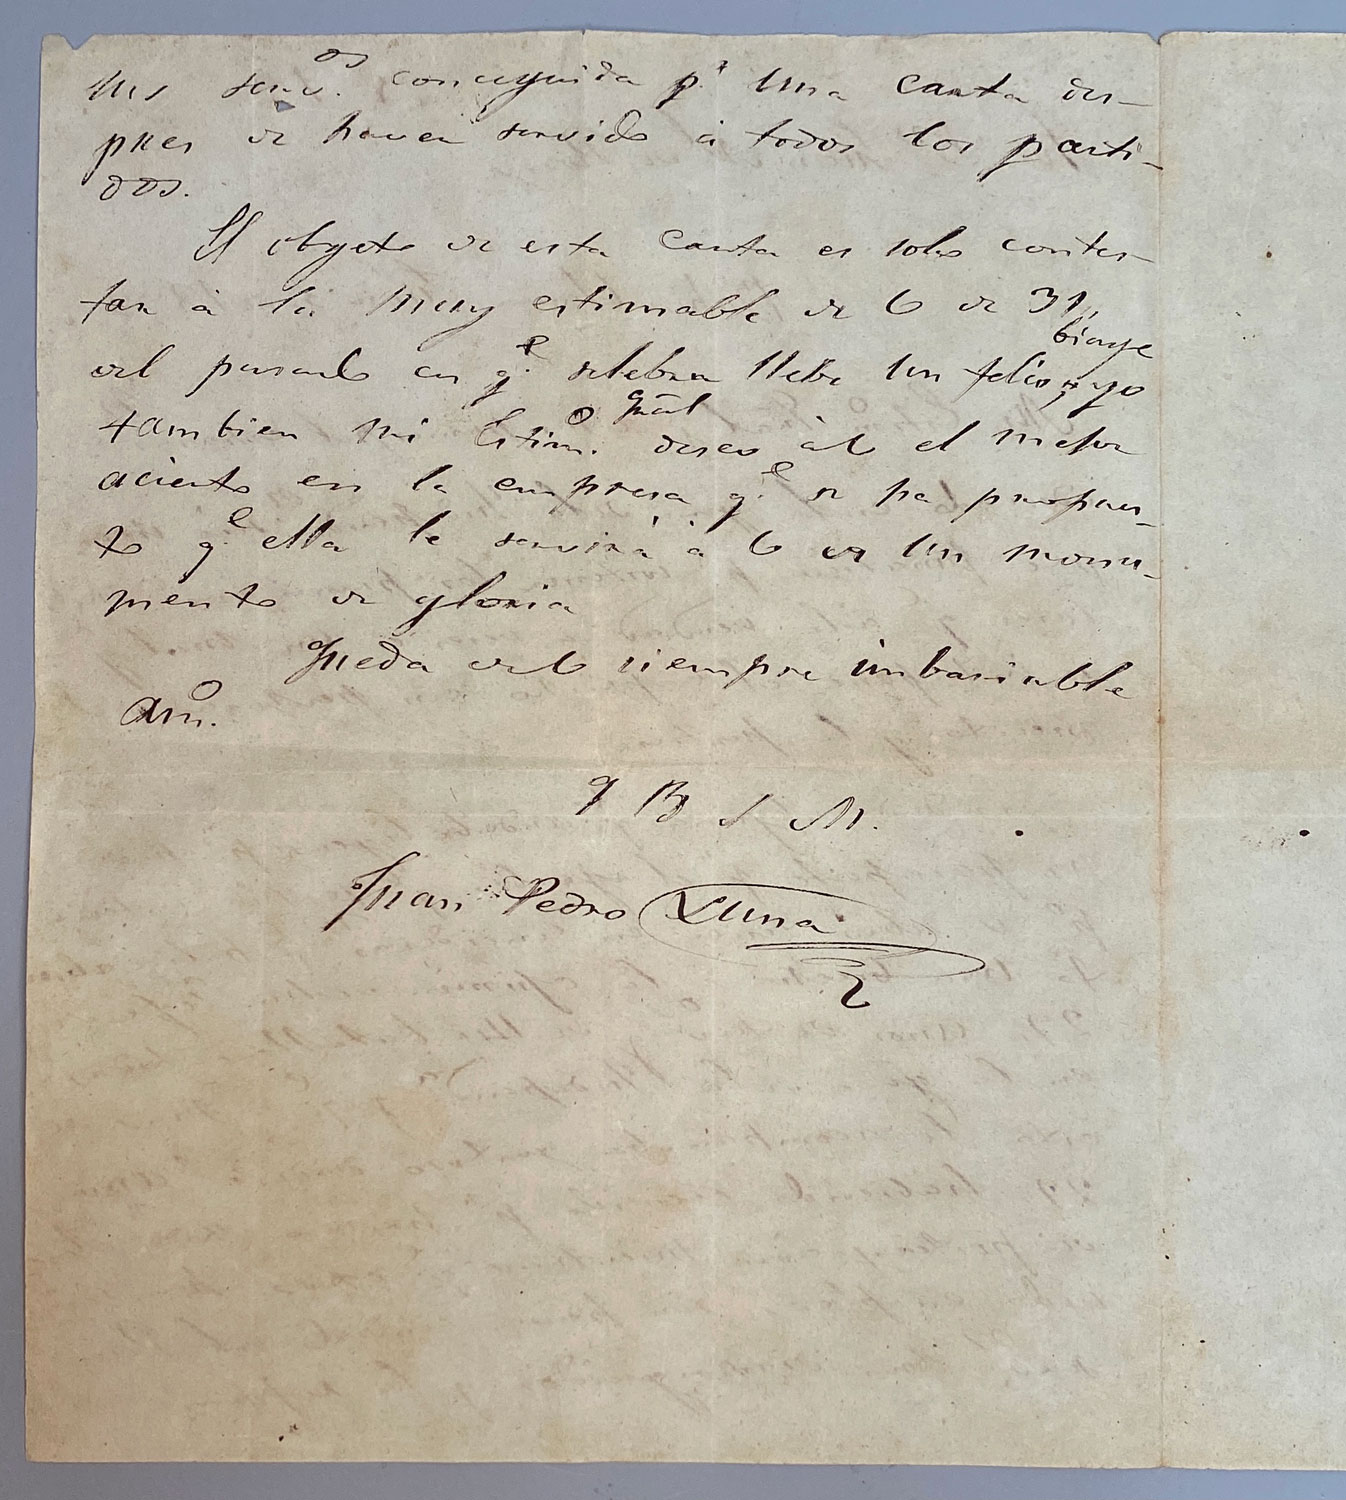 mis serv.os conceguida p.r una carta des-
pues de haver servido á todos los parti-
dos.
El obgeto de esta Carta es solo contes-
tar á la muy estimable de V de 31,,
del pasado en q.e selebra llebe un felis biage, yo
tambien mi Estim.o Gral deseo á V el mejor
acierto en la empresa q.e se ha propues-
to q.e ella le servirá á V de un monu-
mento de gloria
Queda de V siempre imbariable
Am.o
Q B S M.
Juan Pedro Luna